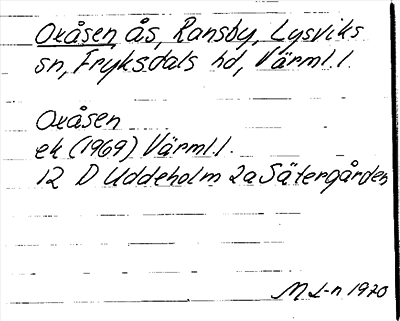 Oxåsen ås, Ransby, Lysviks
sn, Fryksdals hd, Värml.l.
Oxåsen
ek (1969) Värml.l.
12 D Uddeholm 2a Sätergården
M L-n 1970